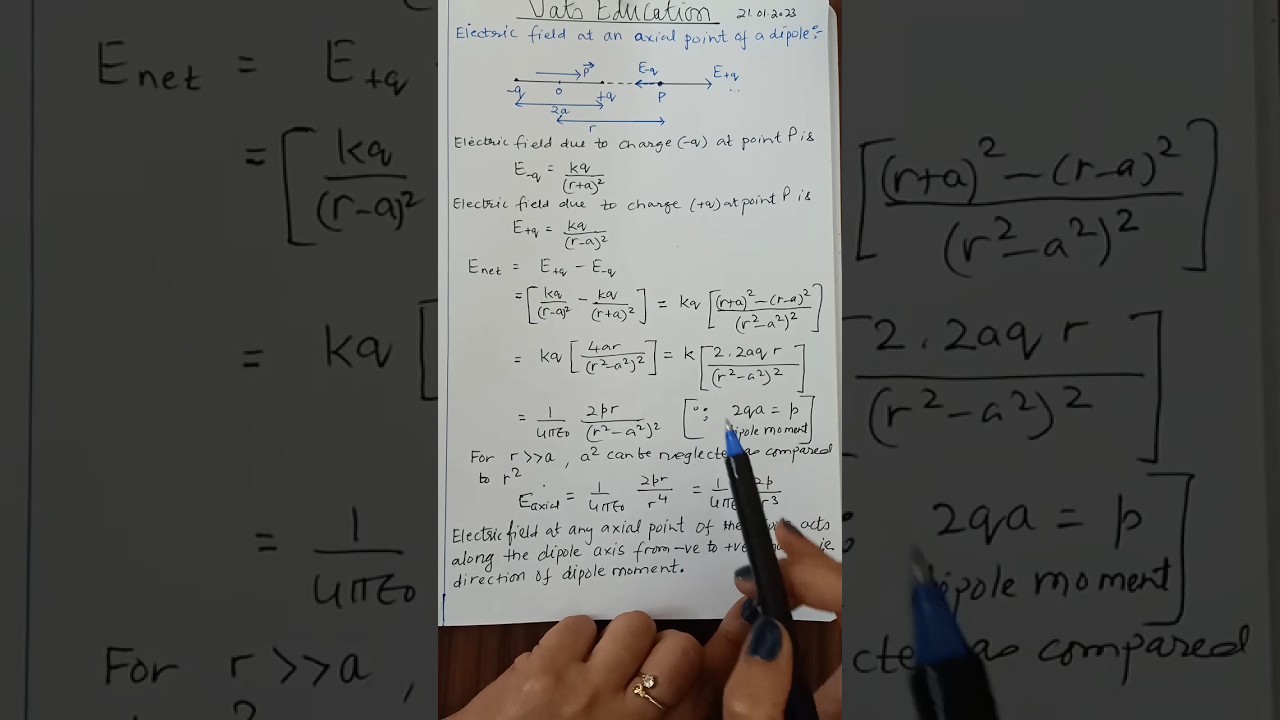 Vats Education 21.01.2023
Electric field at an axial point of a dipole:-
E-q E+q
p⃗
-q O +q P
2a
r
Electric field due to charge (-q) at point P is
E-q = kq/(r+a)²
Electric field due to charge (+q) at point P is
E+q = kq/(r-a)²
Enet = E+q - E-q
= [kq/(r-a)² - kq/(r+a)²] = kq [((r+a)² - (r-a)²)/(r²-a²)²]
= kq [4ar/(r²-a²)²] = k [2.2aq r/(r²-a²)²]
= 1/4πε₀ 2pr/(r²-a²)² [∵ 2qa = p
dipole moment]
For r>>a, a² can be neglected as compared
to r².
Eaxial = 1/4πε₀ 2pr/r⁴ = 1/4πε₀ 2p/r³
Electric field at any axial point of the acts
along the dipole axis from -ve to +ve ie
direction of dipole moment.
Enet = E+q
= [kq/(r-a)²
= kq [
= 1/4πε₀
For r>>a,
[((r+a)² - (r-a)²)/(r²-a²)²]
2.2aq r/(r²-a²)²]
2qa = p
dipole moment]
as compared